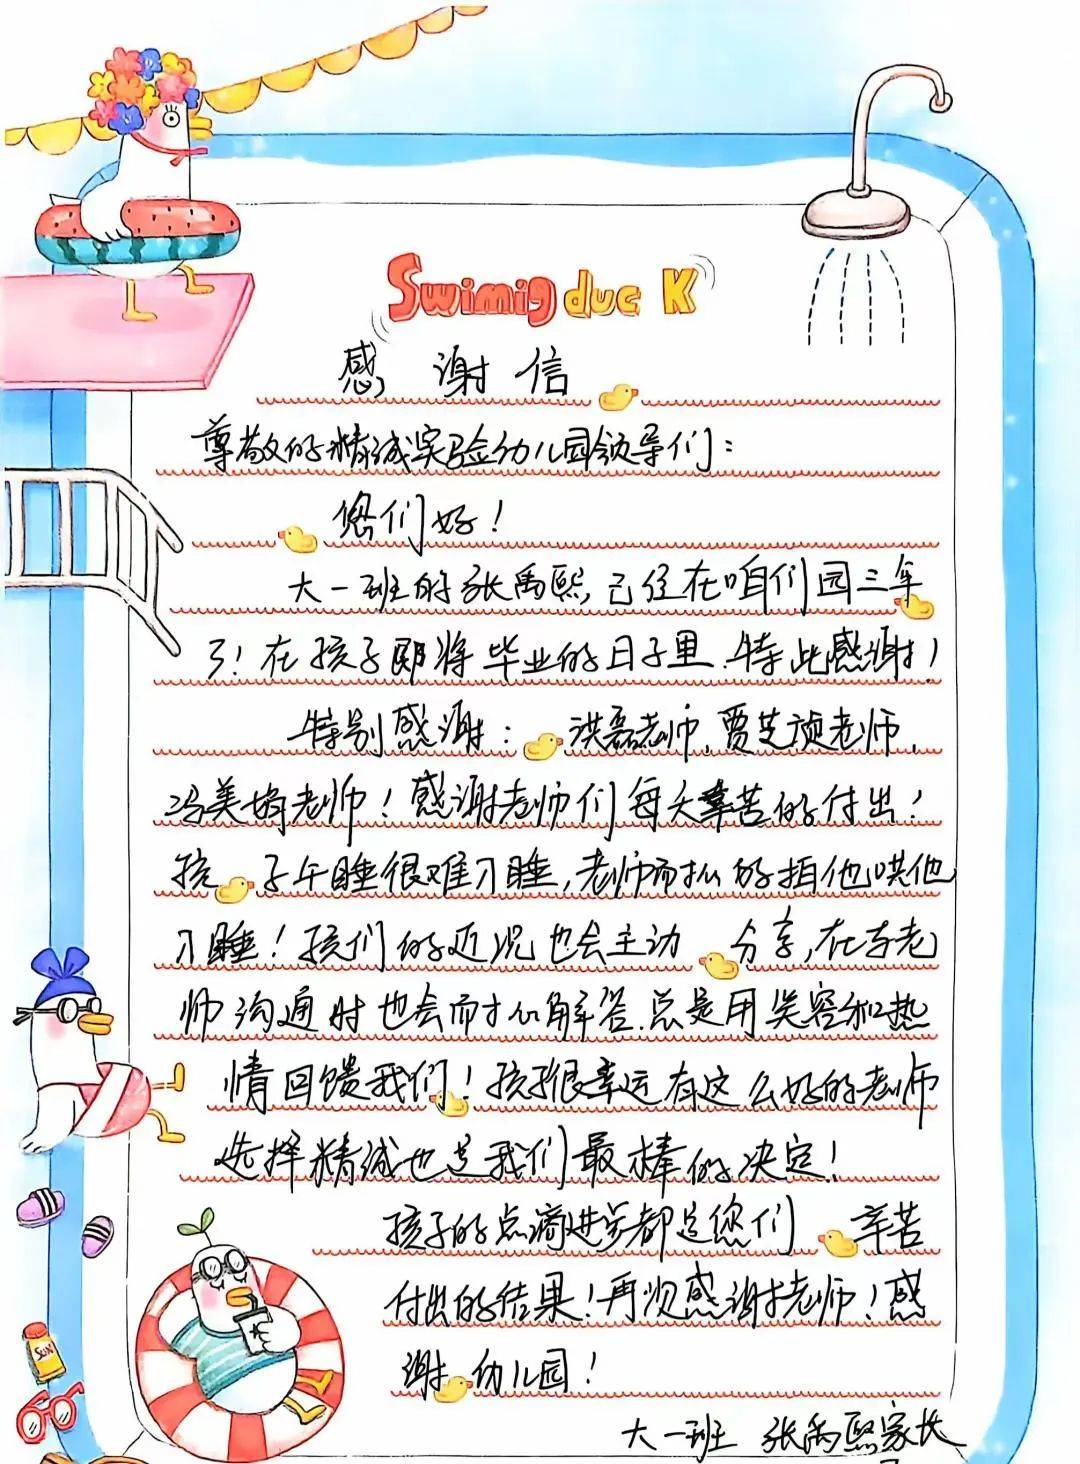 Swimig duc K
感 谢 信
尊敬的精诚实验幼儿园领导们：
您们好！
大一班的张禹熙，已经在咱们园三年
了！在孩子即将毕业的日子里，特此感谢！
特别感谢：洪磊老师，贾芝 老师，
冯美娟老师！感谢老师们每天辛苦的付出！
孩子午睡很难入睡，老师耐心的拍他哄他
入睡！孩们的近况也会主动分享，在与老
师沟通时也会耐心解答，总是用笑容和热
情回馈我们！孩子很幸运有这么好的老师
选择精诚也是我们最棒的决定！
孩子的点滴进步都是您们辛苦
付出的结果！再次感谢老师！感
谢幼儿园！
SUN
大一班 张禹熙家长